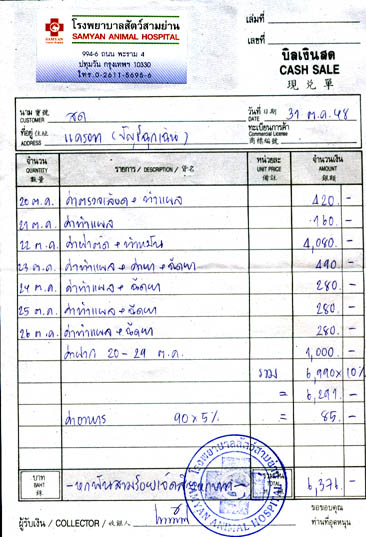 โรงพยาบาลสัตว์สามย่าน
SAMYAN ANIMAL HOSPITAL
SAMYAN
994-6 ถนน พระราม 4
ปทุมวัน กรุงเทพฯ 10330
โทร.0-2611-5698-6
เล่มที่
เลขที่
บิลเงินสด
CASH SALE
現兌單
นาม 寶號 สด
CUSTOMER
วันที่ 日期 31 ต.ค.48
DATE
ที่อยู่ 住址
ADDRESS
ทะเบียนการค้า
Commercial License
商標編號
จำนวน
QUANTITY
數量
รายการ / DESCRIPTION / 貨名
หน่วยละ
UNIT PRICE
備註
จำนวนเงิน
AMOUNT
銀額
20 ต.ค. ค่าตรวจเลือด + ทำแผล 420.-
21 ต.ค. ค่าทำแผล 160.-
22 ต.ค. ค่าผ่าตัด + ทำหมัน 4,080.-
23 ต.ค. ค่าทำแผล + ค่ายา + ฉีดยา 490.-
24 ต.ค. ค่าทำแผล + ฉีดยา 280.-
25 ต.ค. ค่าทำแผล + ฉีดยา 280.-
26 ต.ค. ค่าทำแผล + ฉีดยา 280.-
ค่าฝาก 20-29 ต.ค. 1,000.-
รวม 6,990 x 10%
= 6,291.-
ค่าอาหาร 90 x 5% = 85.-
บาท
BAHT
銖
-หกพันสามร้อยเจ็ดสิบหกบาท-
TOTAL 6,376.-
โรงพยาบาลสัตว์สามย่าน
SAMYAN ANIMAL HOSPITAL
ผู้รับเงิน / COLLECTOR / 收銀人
ขอขอบคุณ
ท่านที่อุดหนุน